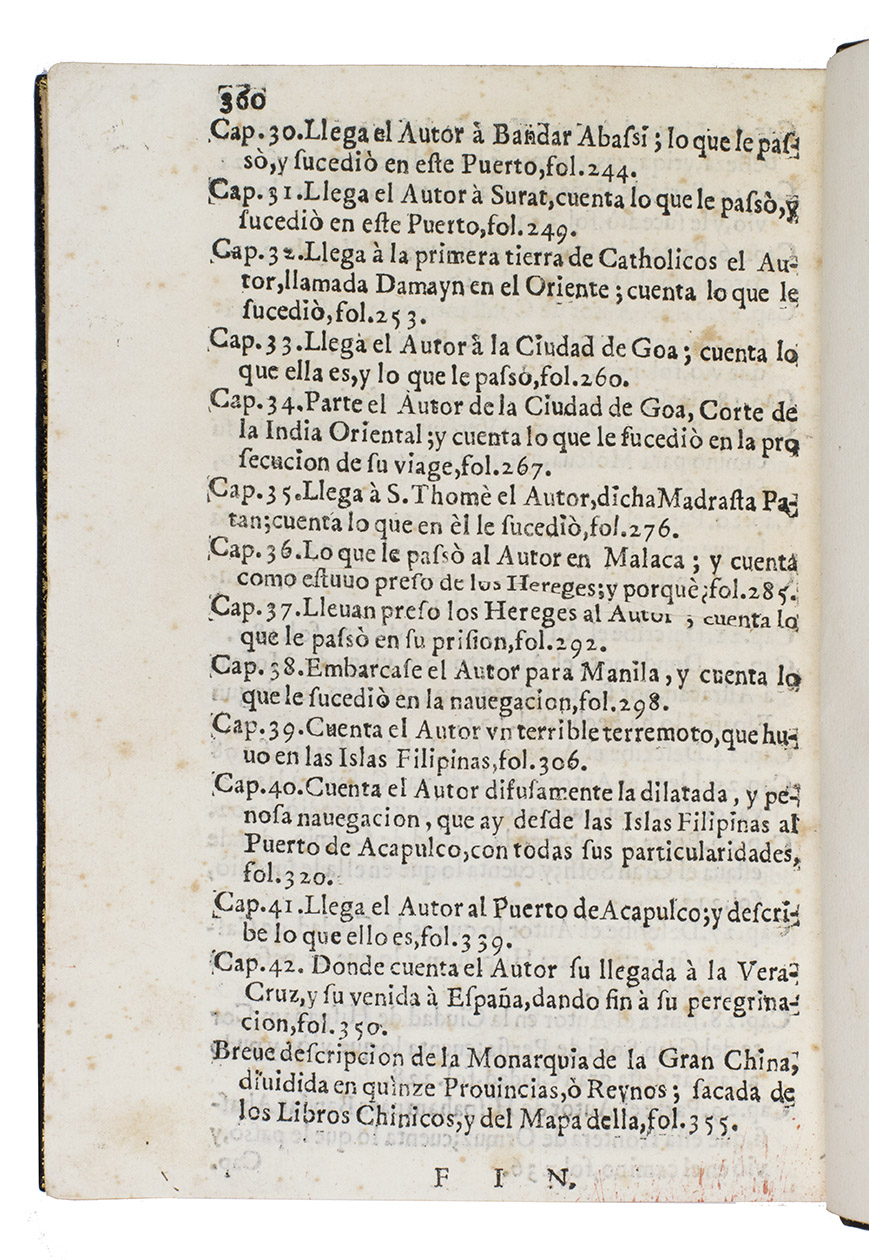 360
Cap.30.Llega el Autor à Bandar Abaſsi; lo que le paſ-
sò,y ſucediò en eſte Puerto,fol.244.
Cap.31.Llega el Autor à Surat,cuenta lo que le paſsò,y
ſucediò en eſte Puerto,fol.249.
Cap.32.Llega à la primera tierra de Catholicos el Au-
tor,llamada Damayn en el Oriente; cuenta lo que le
ſucediò,fol.253.
Cap.33.Llega el Autor à la Ciudad de Goa; cuenta lo
que ella es,y lo que le paſsò,fol.260.
Cap.34.Parte el Autor de la Ciudad de Goa, Corte de
la India Oriental;y cuenta lo que le ſucediò en la pro
ſecucion de ſu viage,fol.267.
Cap.35.Llega à S.Thomè el Autor,dicha Madraſta Pa-
tan;cuenta lo que en èl le ſucediò,fol.276.
Cap.36.Lo que le paſsò al Autor en Malaca; y cuenta
como eſtuuo preſo de los Hereges;y porquè,fol.285.
Cap.37.Lleuan preſo los Hereges al Autor; cuenta lo
que le paſsò en ſu priſion,fol.292.
Cap.38.Embarcaſe el Autor para Manila, y cuenta lo
que le ſucediò en la nauegacion,fol.298.
Cap.39.Cuenta el Autor vn terrible terremoto,que hu-
uo en las Islas Filipinas,fol.306.
Cap.40.Cuenta el Autor difuſamente la dilatada, y pe-
noſa nauegacion, que ay deſde las Islas Filipinas al
Puerto de Acapulco,con todas ſus particularidades,
fol.320.
Cap.41.Llega el Autor al Puerto de Acapulco;y deſcri-
be lo que ello es,fol.339.
Cap.42. Donde cuenta el Autor ſu llegada à la Vera-
Cruz,y ſu venida à Eſpaña,dando fin à ſu peregrina-
cion,fol.350.
Breue deſcripcion de la Monarquia de la Gran China,
diuidida en quinze Prouincias,ò Reynos; ſacada de
los Libros Chinicos,y del Mapa della,fol.355.
F I N.